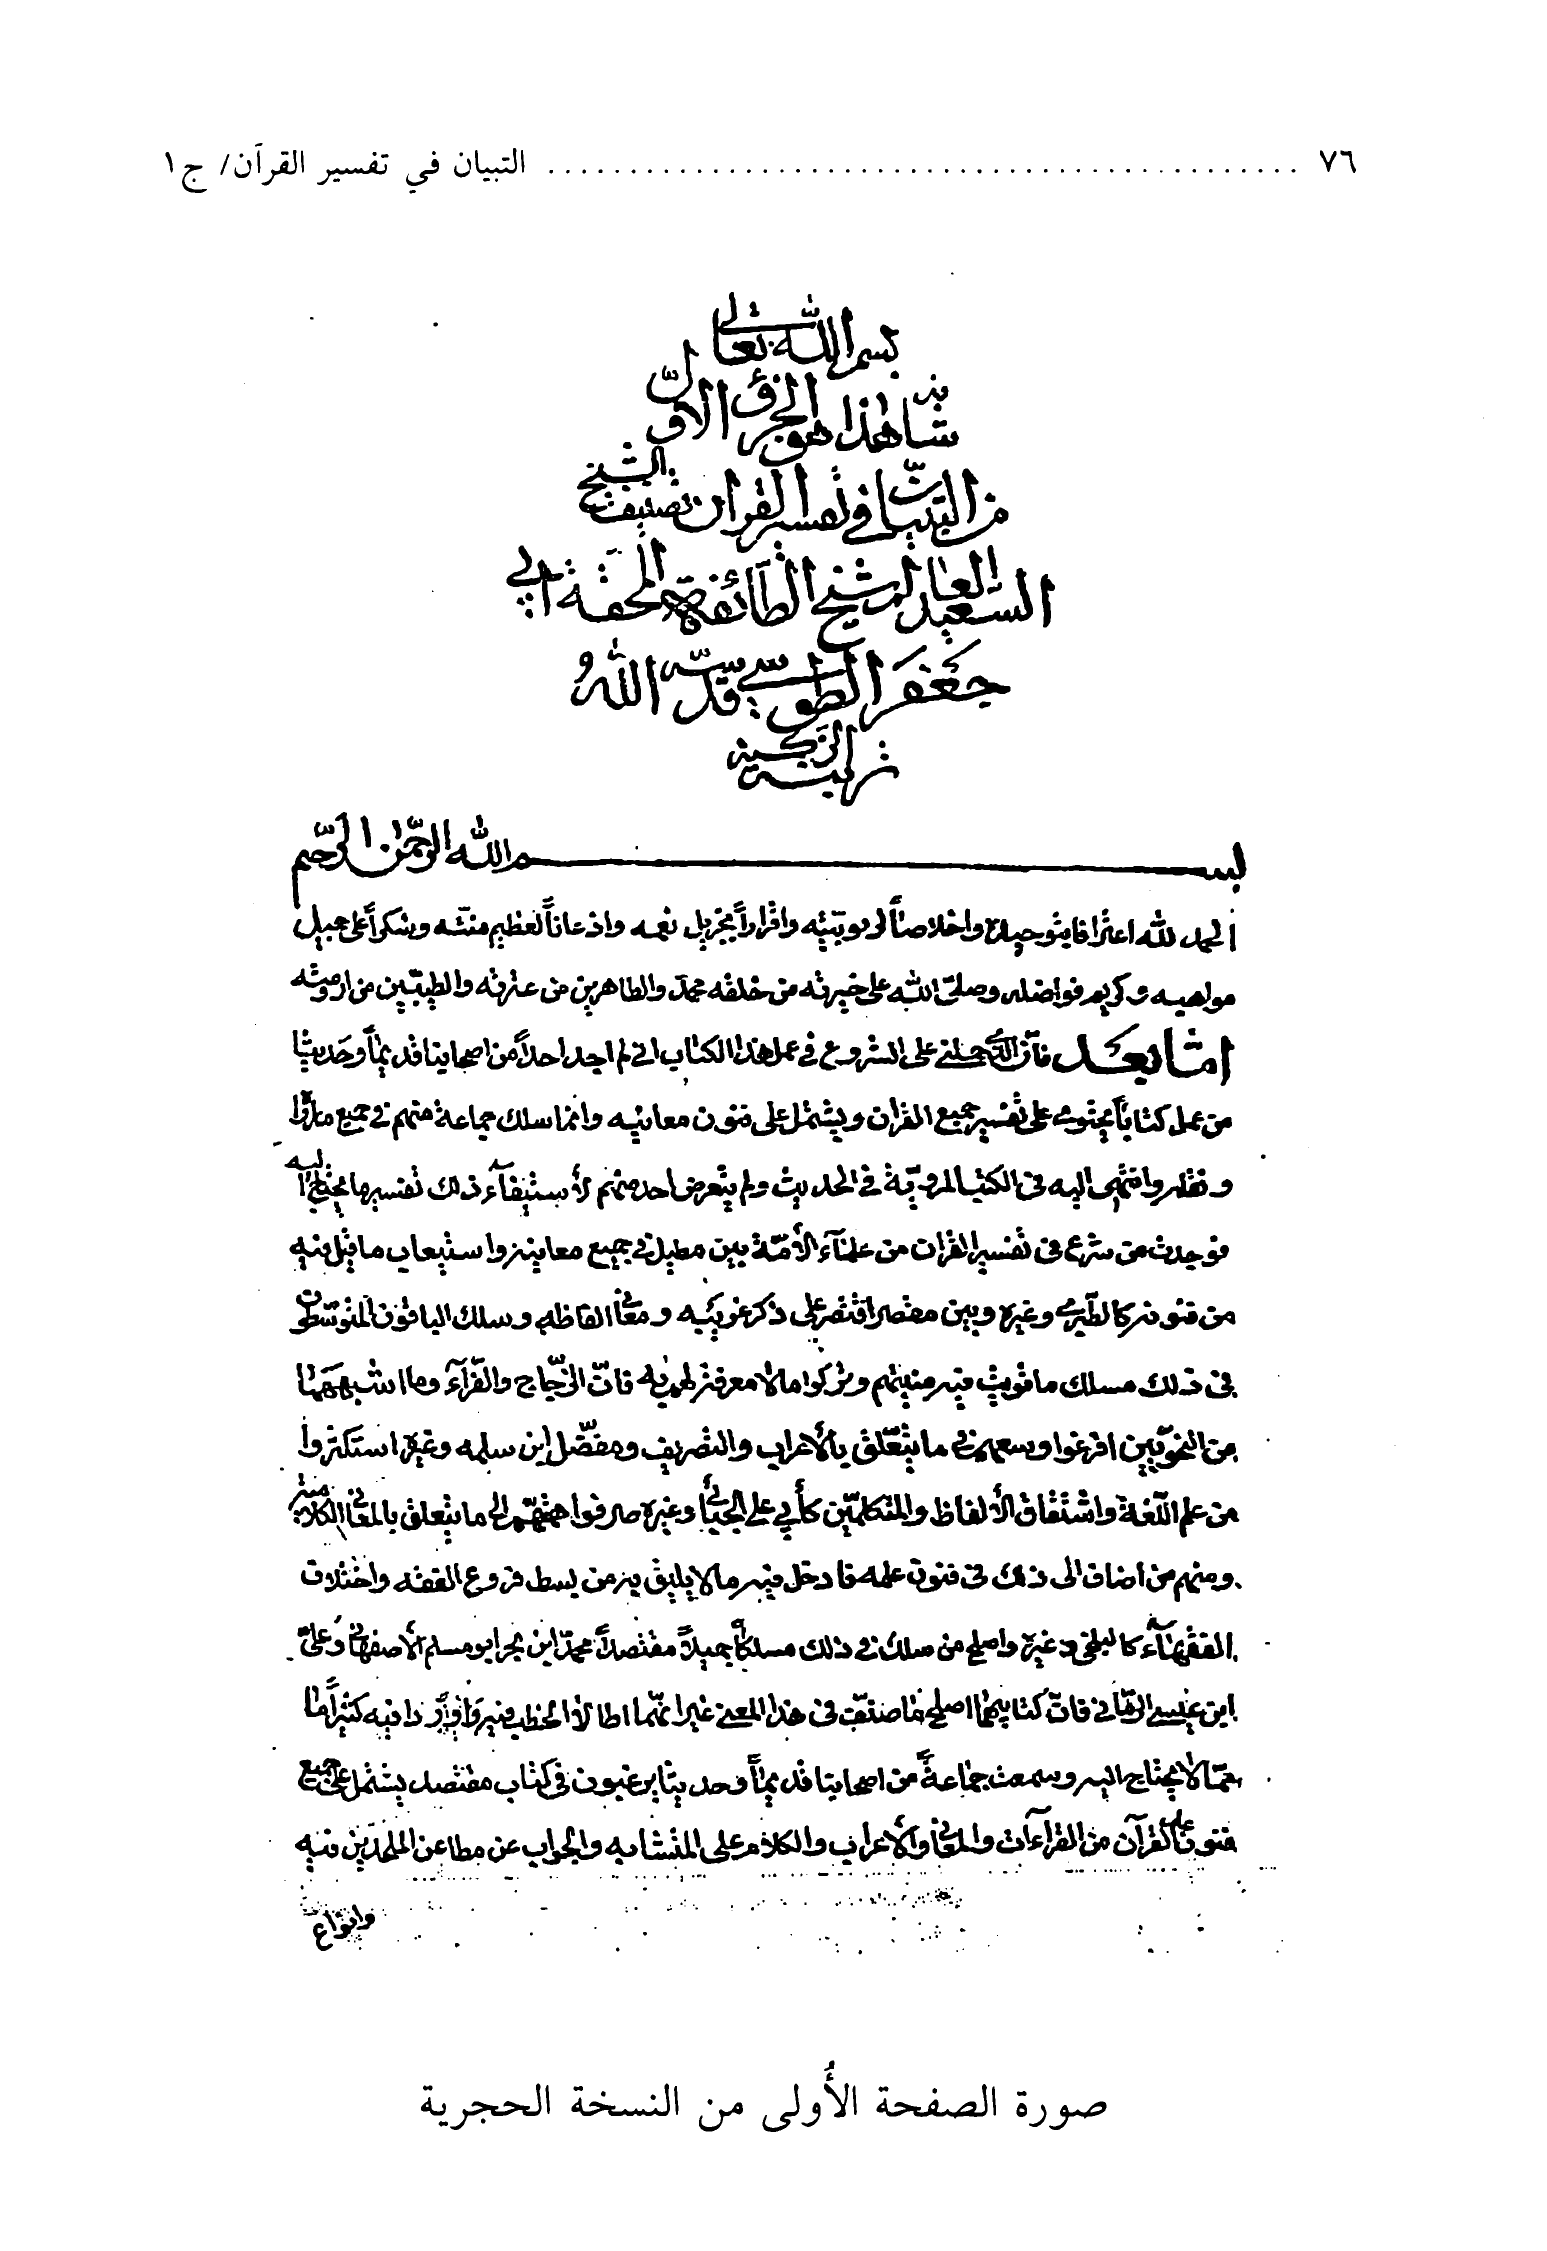 ٧٦ ............................................ التبيان في تفسير القرآن/ ج١
بسم الله تعالى
شانه هذا هو الجزؤ الاوّل
من التبيان في تفسير القران تصنيف الشيخ
السعيد العالم شيخ الطائفة المحقة ابي
جعفر الطوسي قدّس الله
تربته الزكية
بسم الله الرحمن الرحيم
الحمد لله اعترافا بتوحيده واخلاصاً لربوبيّته واقراراً بجزيل نعمه واذعاناً لعظيم منّته وشكراً على جميل
مواهبه وكريم فواضله وصلى الله على خيرته من خلقه محمد والطاهرين من عترته والطيّبين من ارومته
امّا بعد فانّ الذي حملني على الشروع في عمل هذا الكتاب انّي لم اجد احداً من اصحابنا قديماً وحديثا
من عمل كتاباً يحتوي على تفسير جميع القران ويشتمل على فنون معانيه وانما سلك جماعة منهم في جميع ما رواه
ونقله وانتهى اليه في الكتب المرويّة في الحديث ولم يتعرض احد منهم لأستيفآء ذلك تفسير ما يحتاج اليه
فوجدت من شرع في تفسير القران من علمآء الأمّة بين مطيل في جميع معانيه واستيعاب ما قيل فيه
من فنونه كالطبري وغيره وبين مقصر اقتصر على ذكر غريبه ومعاني الفاظه وسلك الباقون المتوسّطون
في ذلك مسلك ما قويت فيه منّتهم وتركوا ما لا معرفة لهم به فانّ الزّجّاج والفرّآء وما اشبههما
من النحويّين افرغوا وسعهم في ما يتعلّق بالأعراب والتصريف ومفضّل ابن سلمه وغيره استكثروا
من علم اللّغة واشتقاق الألفاظ والمتكلّمين كأبي علي الجبائي وغيره صرفوا همّتهم الى ما يتعلق بالمعاني الكلامية
ومنهم من اضاف الى ذلك في فنون علمه فادخل فيه ما لا يليق به من بسط فروع الفقه واختلاف
الفقهآء كالبلخي وغيره واصلح من سلك في ذلك مسلكاً جميلاً مقتصداً محمّد ابن بحر ابو مسلم الأصفهاني وعليّ
ابن عيسى الرّمّاني فانّ كتابيهما اصلح ما صنّف في هذا المعنى غير انّهما اطالا الخطب فيه واوردا فيه كثيراً ما
ممّا لا يحتاج اليه وسمعت جماعةً من اصحابنا قديماً وحديثا يرغبون في كتاب مقتصد يشتمل على جميع
فنون علم القرآن من القراءات والمعاني والأعراب والكلام على المتشابه والجواب عن مطاعن الملحدين فيه
وانواع
صورة الصفحة الأُولى من النسخة الحجرية